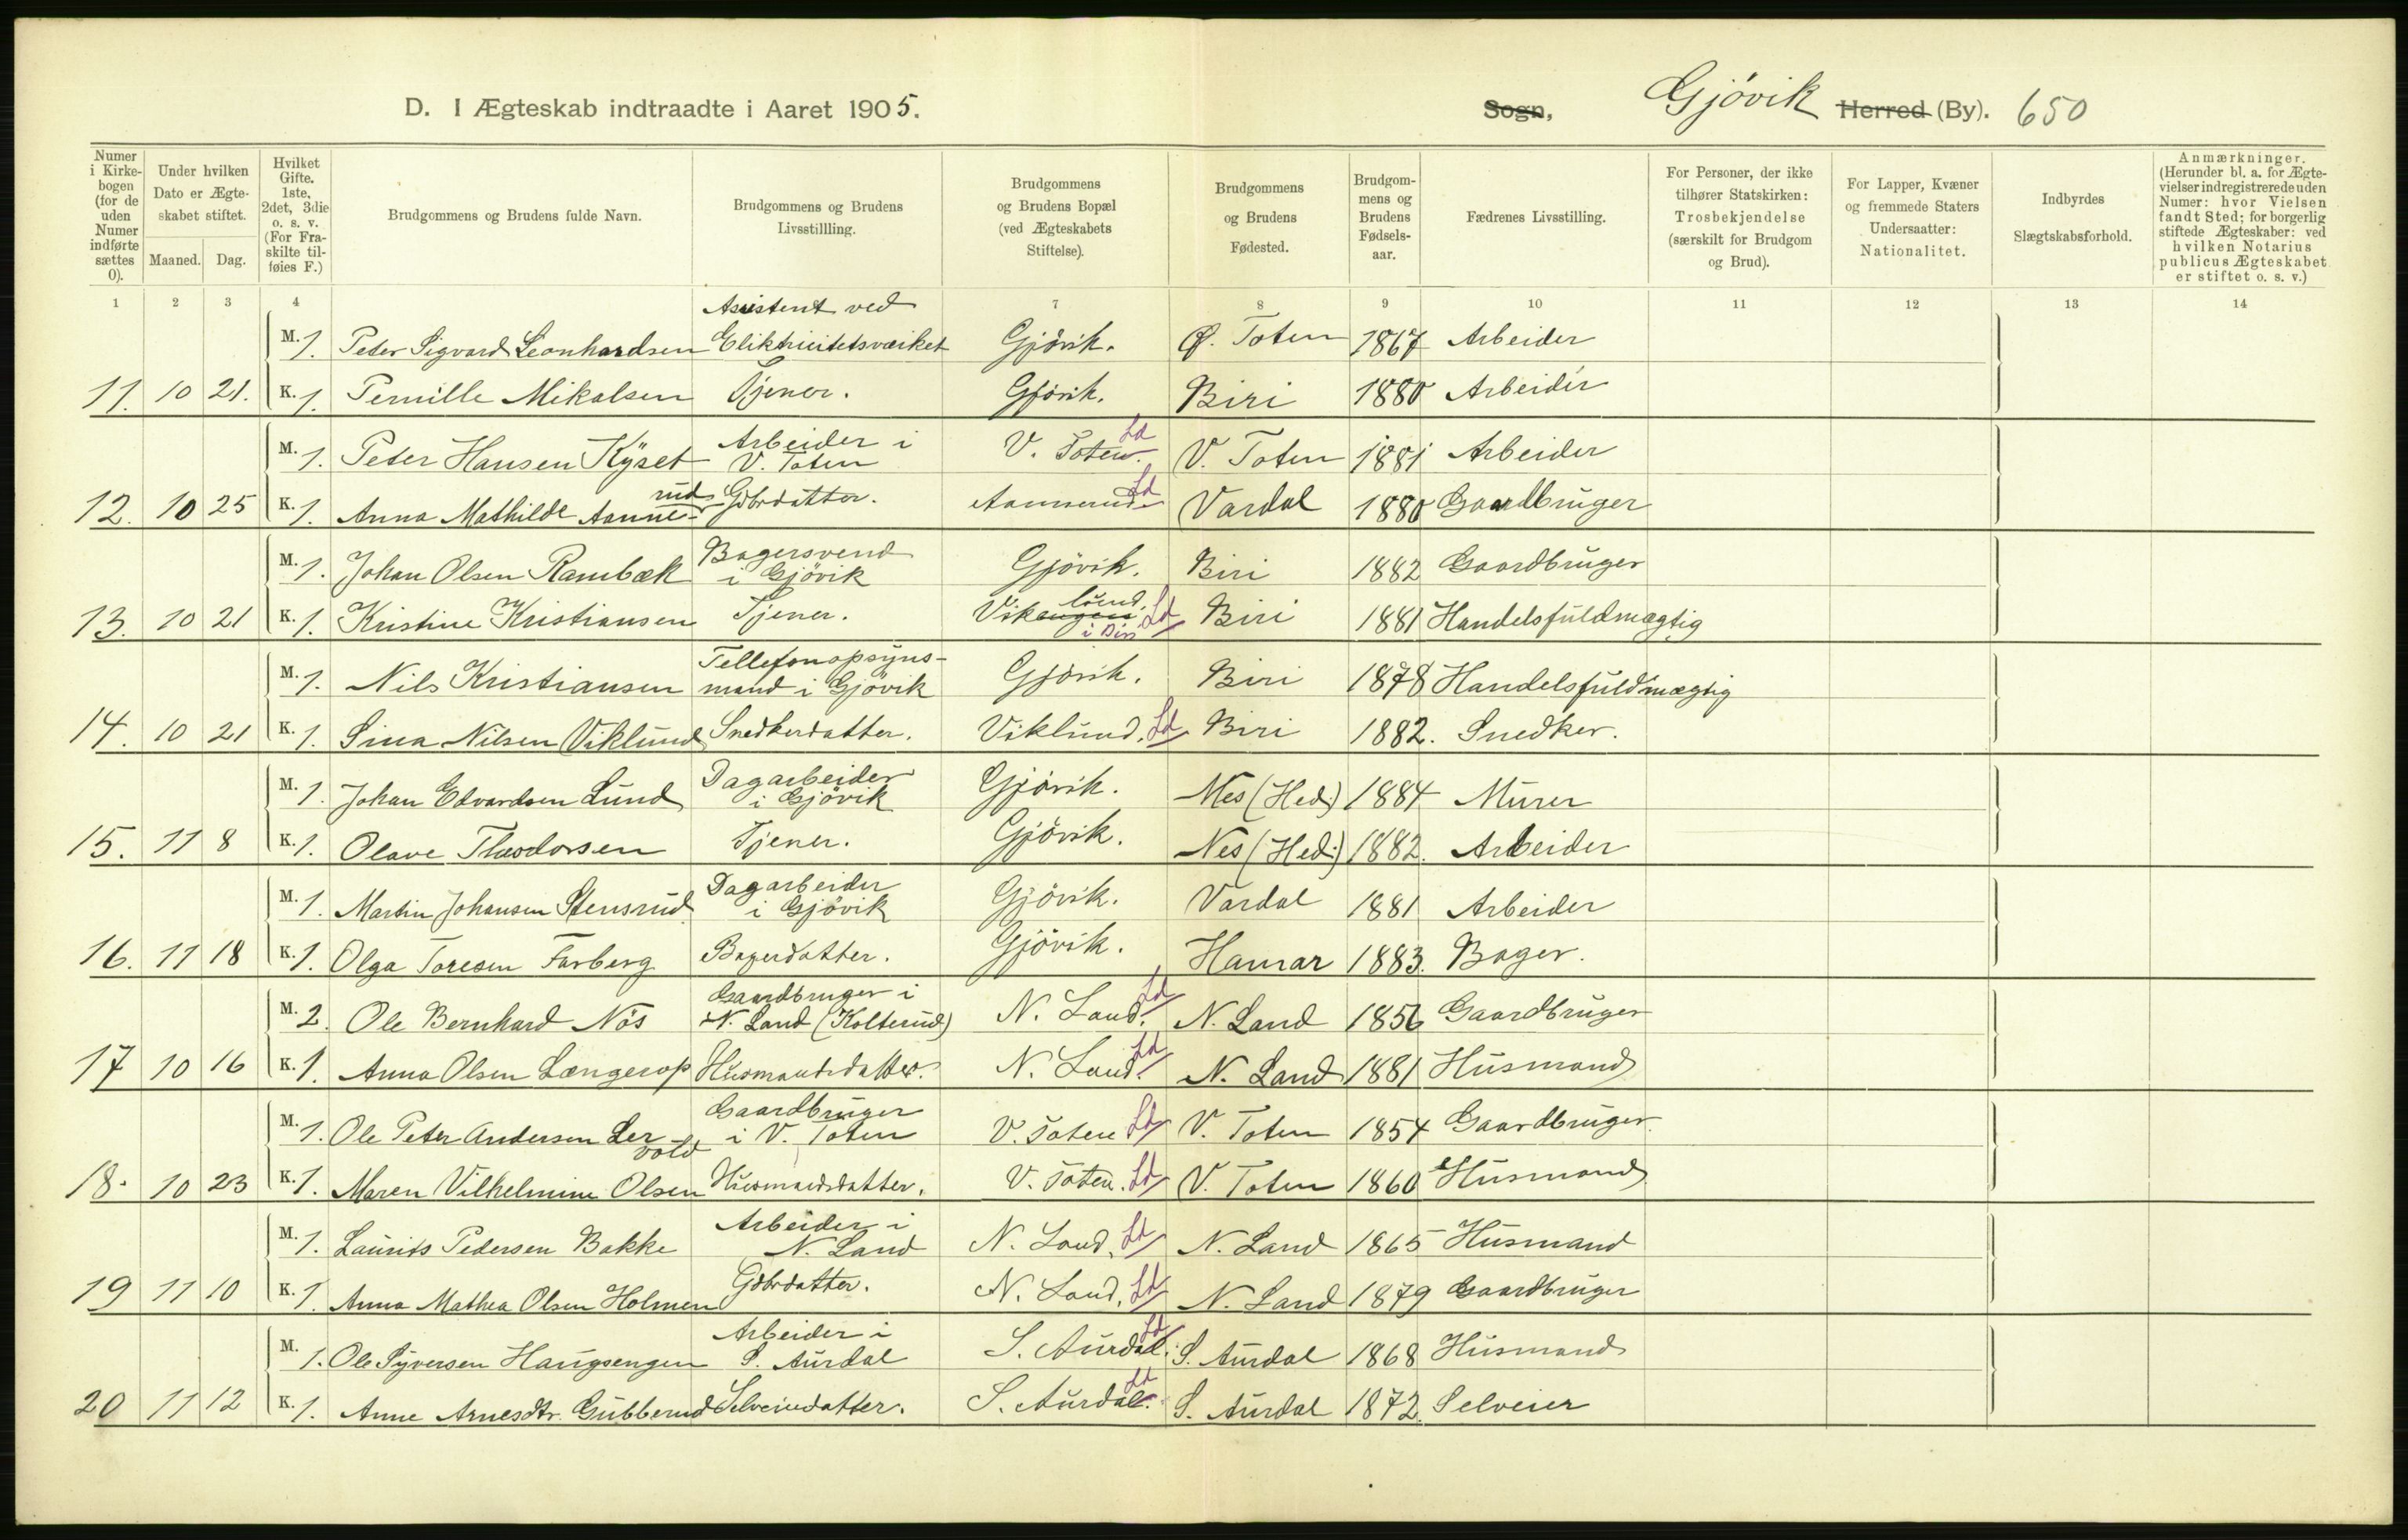 D. I Ægteskab indtraadte i Aaret 1905.
Sogn, Gjövik Herred (By). 650
Numer i Kirkebogen (for de uden Numer indførte sættes 0).
Under hvilken Dato er Ægteskabet stiftet.
Maaned. Dag.
Hvilket Gifte. 1ste, 2det, 3die o. s. v. (For Fraskilte tilføies F.)
Brudgommens og Brudens fulde Navn.
Brudgommens og Brudens Livsstillling.
Brudgommens og Brudens Bopæl (ved Ægteskabets Stiftelse).
Brudgommens og Brudens Fødested.
Brudgommens og Brudens Fødselsaar.
Fædrenes Livsstilling.
For Personer, der ikke tilhører Statskirken: Trosbekjendelse (særskilt for Brudgom og Brud).
For Lapper, Kvæner og fremmede Staters Undersaatter: Nationalitet.
Indbyrdes Slægtskabsforhold.
Anmærkninger. (Herunder bl. a. for Ægtevielser indregistrerede uden Numer: hvor Vielsen fandt Sted; for borgerlig stiftede Ægteskaber: ved hvilken Notarius publicus Ægteskabet er stiftet o. s. v.)
1 2 3 4 7 8 9 10 11 12 13 14
M. 1. Peter Sigvard Leonhardsen Assistent ved Eliktricitetsværket Gjövik. Ø. Toten 1867 Arbeider
11. 10 21. K. 1. Pernille Mikalsen Tjener. Gjövik. Biri 1880 Arbeider
M. 1. Peter Hansen Kÿset Arbeider i V. Toten V. Toten. Ld V. Toten 1881 Arbeider
12. 10 25 K. 1. Anna Mathilde Aannerud Gdbrdatter. Aannerud. Ld Vardal 1880 Gaardbruger
M. 1. Johan Olsen Rambæk Bagersvend i Gjövik Gjövik. Biri 1882 Gaardbruger
13. 10 21 K. 1. Kristine Kristiansen Tjener. Vikengen lund. i Biri Ld Biri 1881 Handelsfuldmægtig
M. 1. Nils Kristiansen Tellefonopsÿnsmand i Gjövik Gjövik. Biri 1878 Handelsfuldmægtig
14. 10 21 K. 1. Sina Nilsen Viklund Snedkerdatter. Viklund. Ld Biri 1882. Snedker.
M. 1. Johan Edvardsen Lund Dagarbeider i Gjövik Gjövik. Nes (Hed.) 1884 Murer
15. 11 8 K. 1. Olave Theodorsen Tjener. Gjövik. Nes (Hed.) 1882. Arbeider
M. 1. Martin Johansen Stensrud Dagarbeider i Gjövik Gjövik. Vardal 1881 Arbeider
16. 11 18 K. 1. Olga Toresen Farberg Bagerdatter. Gjövik. Hamar 1883. Bager.
M. 2. Ole Bernhard Nös Gaardbruger i N. Land (Kolterud) N. Land. Ld N. Land 1856 Gaardbruger
17 10 16 K. 1. Anna Olsen Længerop Husmandsdatter. N. Land. Ld N. Land 1881 Husmand
M. 1. Ole Peter Andersen Lervold Gaardbruger i V. Toten V. Toten Ld V. Toten 1854 Gaardbruger.
18. 10 23 K. 1. Maren Vilhelmine Olsen Husmandsdatter. V. Toten. Ld V. Toten 1860 Husmand
M. 1. Laurits Pedersen Bakke Arbeider i N. Land N. Land. Ld N. Land 1865 Husmand
19 11 10 K. 1. Anna Mathea Olsen Holmen Gdbrdatter. N. Land. Ld N. Land 1879 Gaardbruger
M. 1. Ole Syversen Haugsengen Arbeider i S. Aurdal S. Aurdal. Ld S. Aurdal 1868 Husmand
20 11 12 K. 1. Anne Arnesdtr. Gubberud Selveierdatter. S. Aurdal. Ld S. Aurdal 1872. Selveier